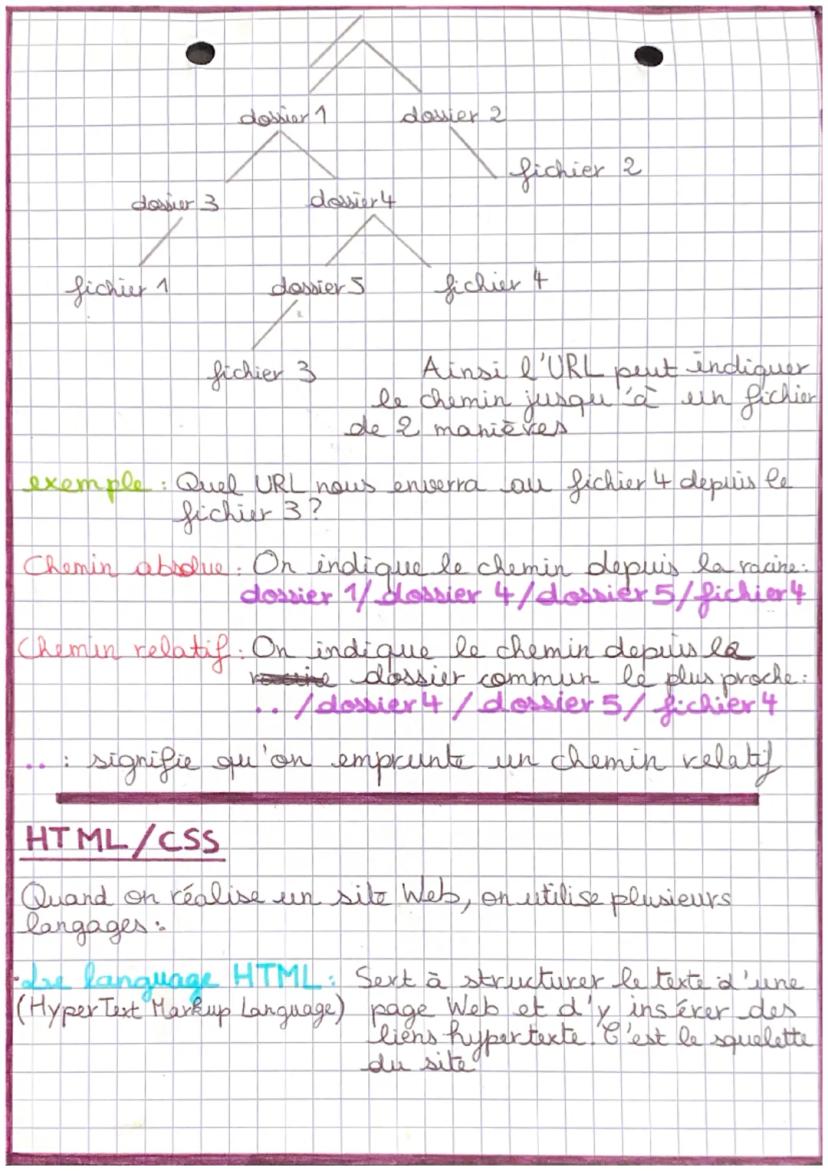 dossier 1 dossier 2
fichier 2
dossier 3 dossier 4
fichier 1 dossier 5 fichier 4
fichier 3 Ainsi l'URL peut indiquer
le chemin jusqu'à un fichier
de 2 manières
exemple : Quel URL nous enverra au fichier 4 depuis le
fichier 3 ?
Chemin absolue : On indique le chemin depuis la racine :
dossier 1/dossier 4/dossier 5/fichier 4
Chemin relatif : On indique le chemin depuis le
racine dossier commun le plus proche :
.. /dossier 4 / dossier 5/ fichier 4
.. : signifie qu'on emprunte un chemin relatif
HTML/CSS
Quand on réalise un site Web, on utilise plusieurs
langages :
• Le language HTML : Sert à structurer le texte d'une
(HyperText Markup Language) page Web et d'y insérer des
liens hypertexte. C'est le squelette
du site